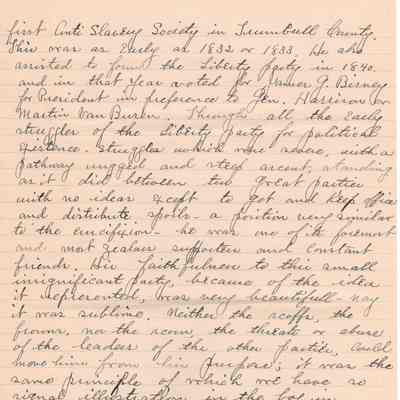 first Anti Slavery Society in Trumbull County.
This was as Early as 1832 or 1833. He also
assisted to found the Liberty party in 1840.
and in that year voted for James G. Birney
for President in preference to Gen. Harrison or
Martin Van Buren. Through all the Early
struggles of the Liberty party for political
Existence. struggles which were severe, with a
pathway rugged and steep ascent, standing
as it did between two great parties
with no ideas Except to get and keep office
and distribute spoils - a position very similar
to the crucifixion - he was one of its foremost
and most zealous supporters and constant
friends. His faithfulness to this small
insignificant party, because of the idea
it represented, was very beautifull - nay
it was sublime. Neither the scoffs, the
frowns, nor the scorn, the threats or abuse
of the leaders of the other parties, could
move him from his purpose; it was the
same principle of which we have so
signal illustration in the